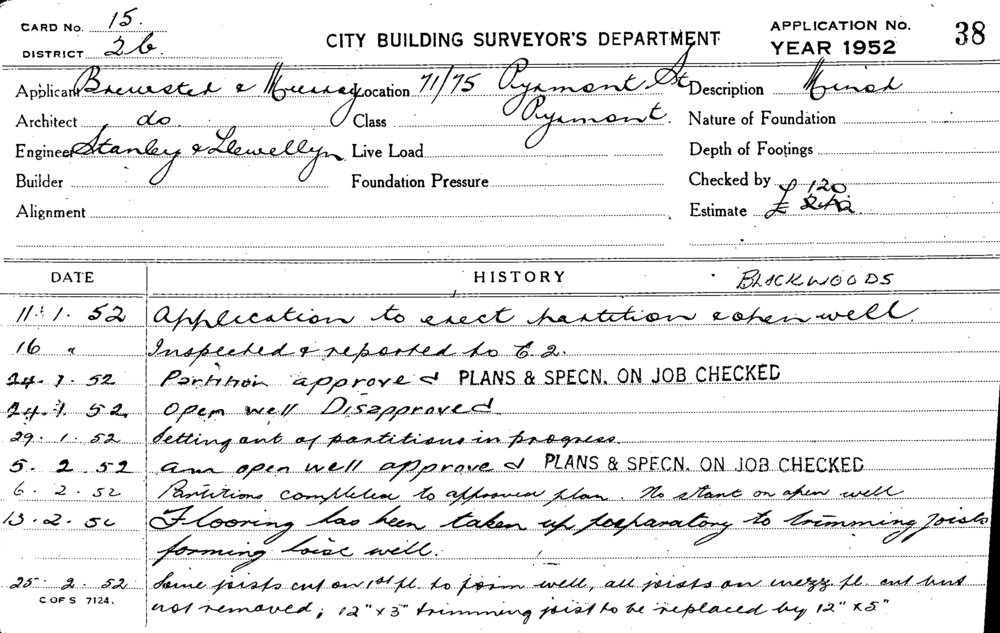 CARD No. 15.
DISTRICT 2b.
CITY BUILDING SURVEYOR'S DEPARTMENT
APPLICATION No. 38
YEAR 1952
Applicant Brewster & Murray Location 71/75 Pyrmont St Description Minor
Architect do. Class Pyrmont. Nature of Foundation
Engineer Stanley & Llewellyn Live Load Depth of Footings
Builder Foundation Pressure Checked by
Alignment Estimate £ 120
DATE HISTORY BLACKWOODS
11. 1. 52 Application to erect partition & open well.
16 " Inspected & reported to E 2.
24. 1. 52 Partition approved PLANS & SPECN. ON JOB CHECKED
24. 1. 52. Open well Disapproved.
29. 1. 52 Setting out of partitions in progress.
5. 2. 52 open well approved PLANS & SPECN. ON JOB CHECKED
6. 2. 52 Partitions completed to approved plan. No start on open well
13. 2. 52 Flooring has been taken up preparatory to trimming joists
forming hoist well.
25. 2. 52 Some joists cut on 1st fl. to form well, all joists on mezz fl. cut but
C OF S 7124. not removed; 12" x 3" trimming joist to be replaced by 12" x 5"